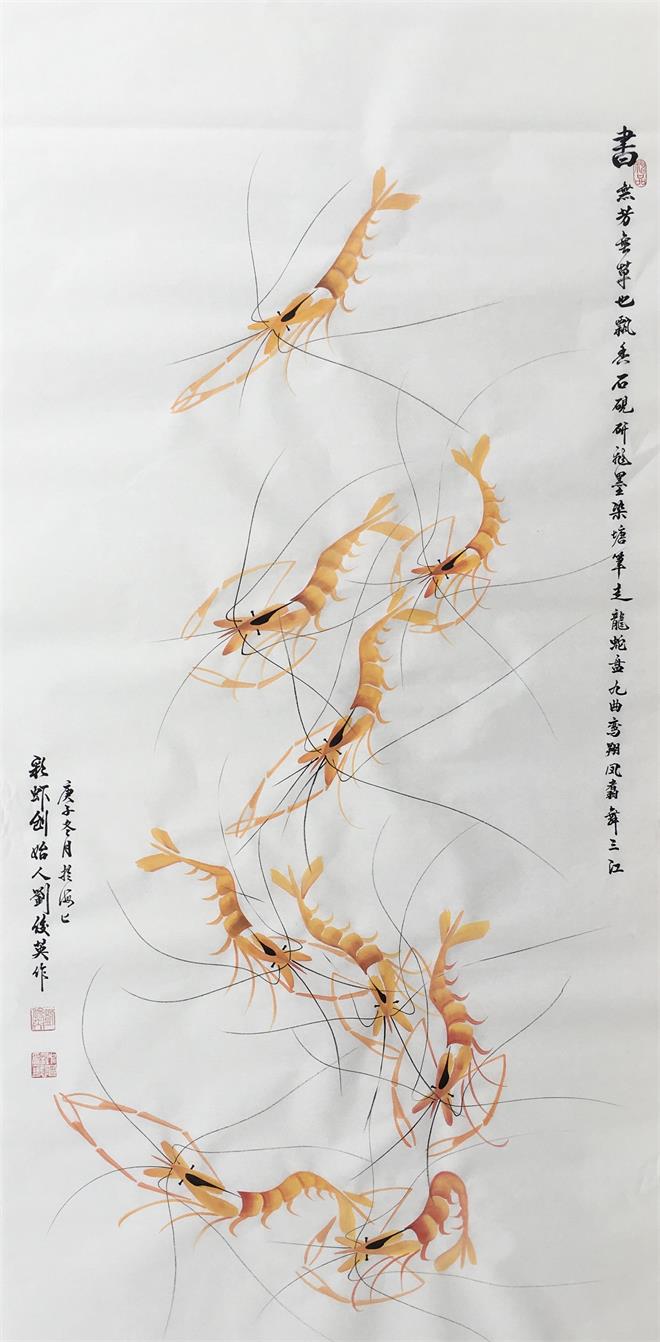 書
無芳無草也飄香石硯研飛墨染塘筆走龍蛇盘九曲鸾翔凤翥舞三江
庚子冬月於海上
彩虾创始人劉俊英作